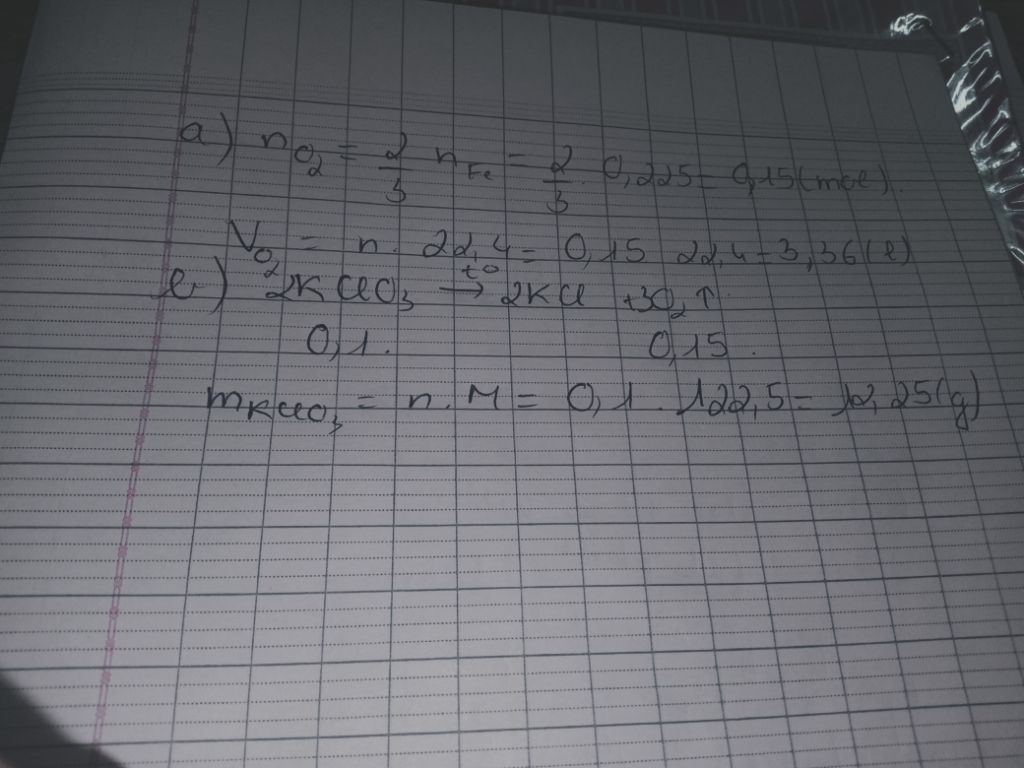 a) nO₂ = 2/3 nFe = 2/3 . 0,225 = 0,15 (mol).
VO₂ = n. 22,4 = 0,15 22,4 = 3,36 (l)
b) 2KClO₃ →t° 2KCl + 3O₂ ↑.
0,1. 0,15.
mKClO₃ = n. M = 0,1 . 122,5 = 12,25 (g)